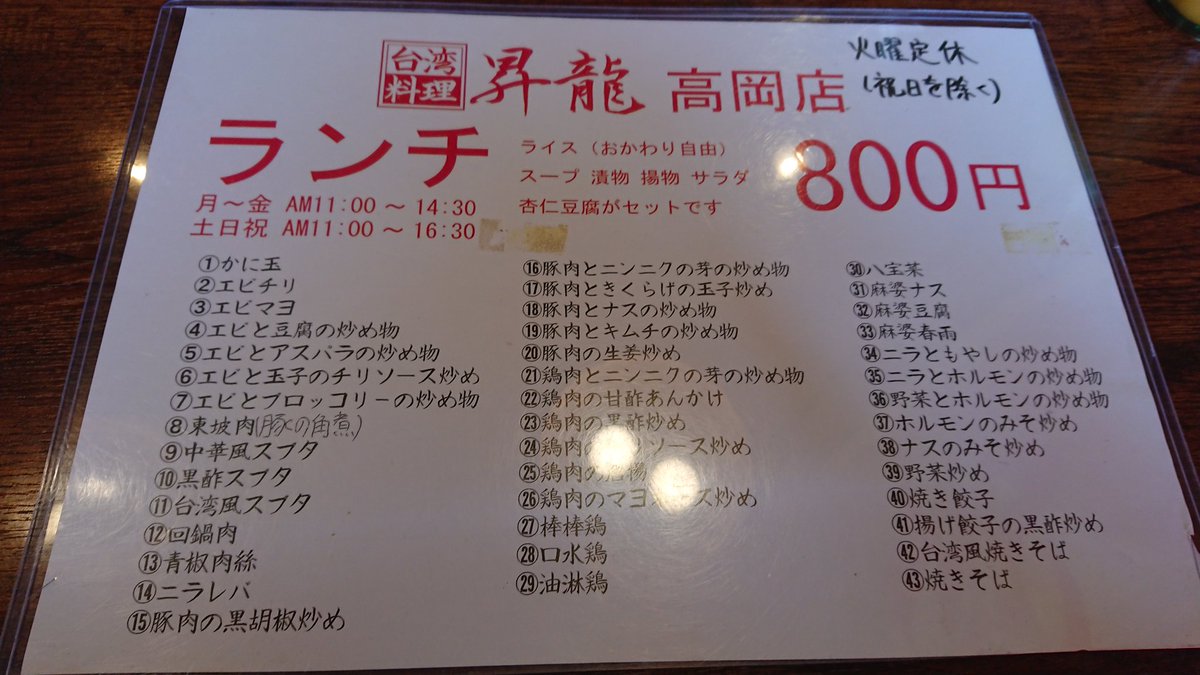 台湾料理 昇龍 高岡店
火曜定休
(祝日を除く)
ランチ
ライス（おかわり自由）
スープ 漬物 揚物 サラダ
杏仁豆腐がセットです
800円
月～金 AM11:00 ～ 14:30
土日祝 AM11:00 ～ 16:30
①かに玉
②エビチリ
③エビマヨ
④エビと豆腐の炒め物
⑤エビとアスパラの炒め物
⑥エビと玉子のチリソース炒め
⑦エビとブロッコリーの炒め物
⑧東坡肉(豚の角煮)
⑨中華風スブタ
⑩黒酢スブタ
⑪台湾風スブタ
⑫回鍋肉
⑬青椒肉絲
⑭ニラレバ
⑮豚肉の黒胡椒炒め
⑯豚肉とニンニクの芽の炒め物
⑰豚肉ときくらげの玉子炒め
⑱豚肉とナスの炒め物
⑲豚肉とキムチの炒め物
⑳豚肉の生姜炒め
㉑鶏肉とニンニクの芽の炒め物
㉒鶏肉の甘酢あんかけ
㉓鶏肉の黒酢炒め
㉔鶏肉 ソース炒め
㉕鶏肉の
㉖鶏肉のマヨ ズ炒め
㉗棒棒鶏
㉘口水鶏
㉙油淋鶏
㉚八宝菜
㉛麻婆ナス
㉜麻婆豆腐
㉝麻婆春雨
㉞ニラともやしの炒め物
㉟ニラとホルモンの炒め物
㊱野菜とホルモンの炒め物
㊲ホルモンのみそ炒め
㊳ナスのみそ炒め
㊴野菜炒め
㊵焼き餃子
㊶揚げ餃子の黒酢炒め
㊷台湾風焼きそば
㊸焼きそば